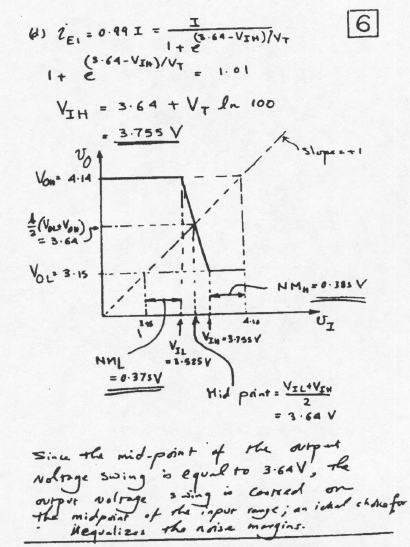 6
(d) i_E1 = 0.99 I = I / (1 + e^(3.64-V_IH)/V_T)
1 + e^(3.64-V_IH)/V_T = 1.01
V_IH = 3.64 + V_T ln 100
= 3.755 V
v_O
slope=+1
V_OH = 4.14
1/2 (V_OL+V_OH)
= 3.64
V_OL = 3.15
NM_H = 0.385V
3.15
4.14
v_I
V_IL
= 3.525V
V_IH = 3.755V
NM_L
= 0.375V
Mid point = (V_IL+V_IH) / 2
= 3.64 V
Since the mid-point of the output
voltage swing is equal to 3.64V, the
output voltage swing is centred on
the midpoint of the input range; an ideal choice for
it equalizes the noise margins.